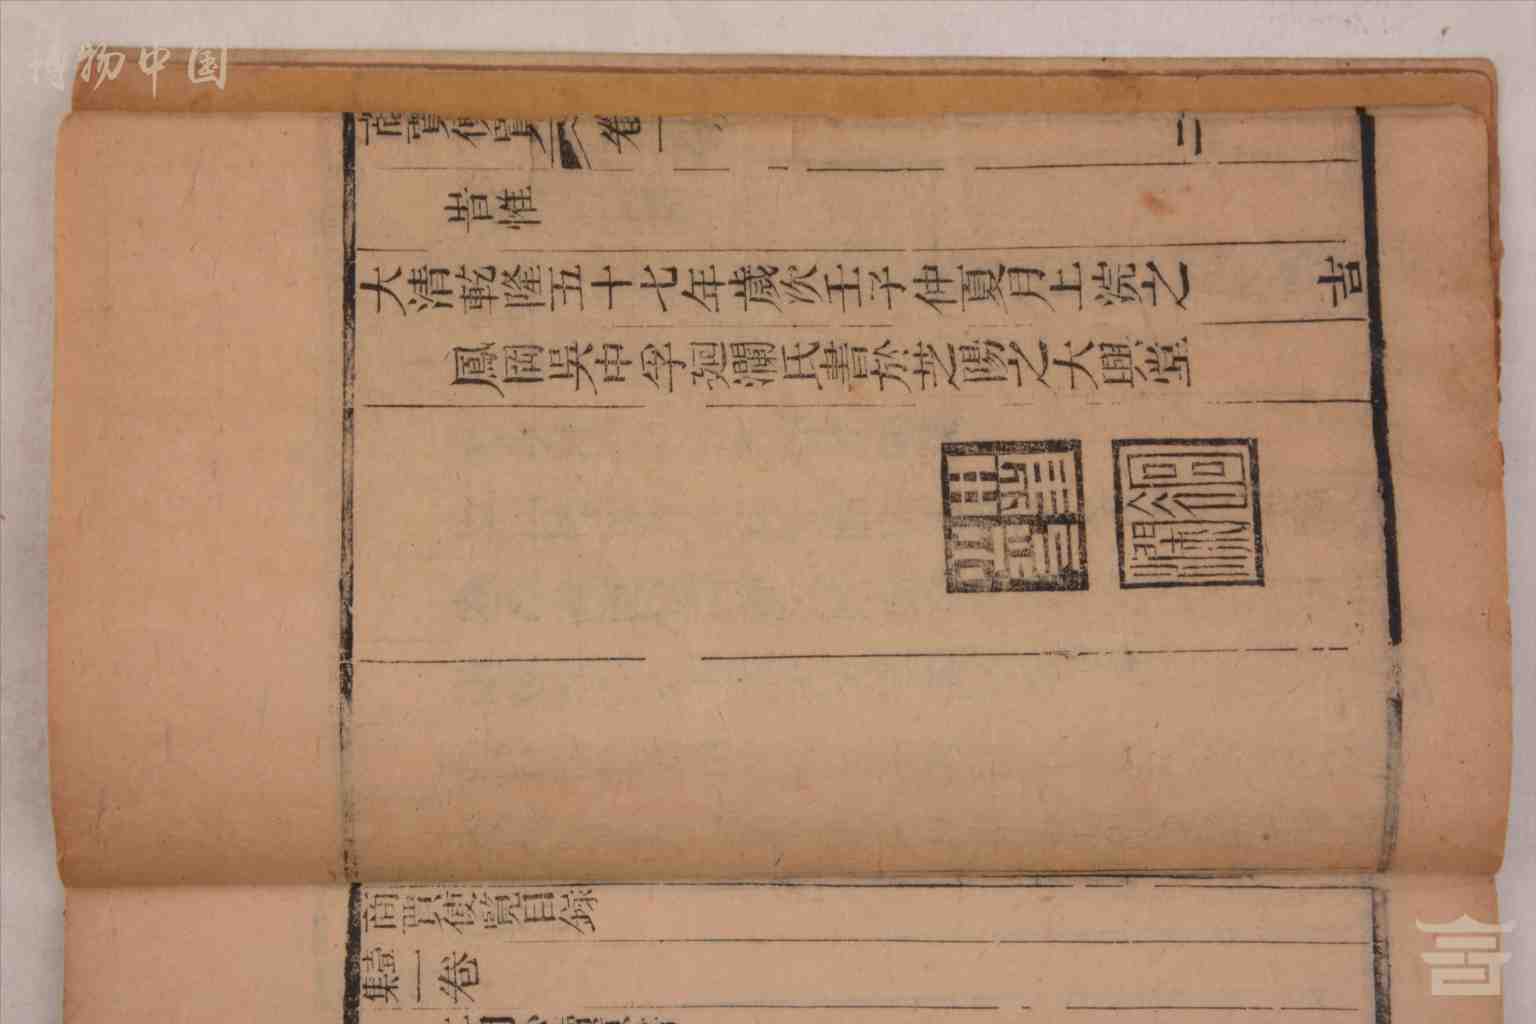 博物中国
商賈便覽 卷一 二
吉
昔惟
大清乾隆五十七年歲次壬子仲夏月上浣之
鳳岡吳中孚廻瀾氏書於芝陽之大興堂
商賈便覽目錄
集壹一卷